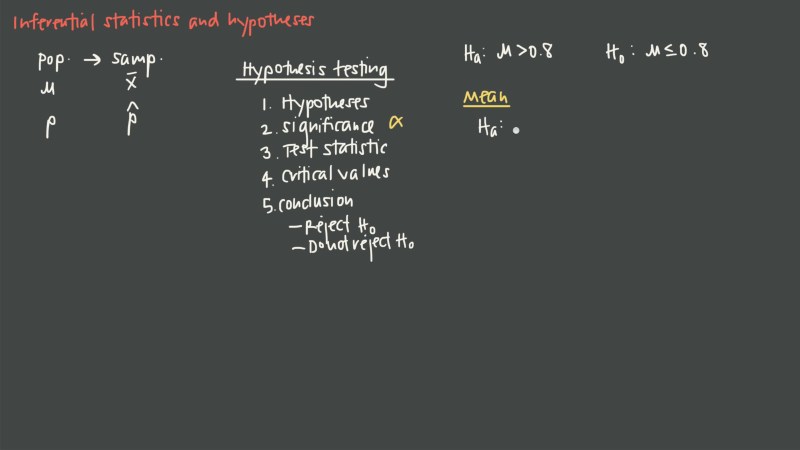 Inferential statistics and hypotheses
pop. → samp.
μ x̄
p p̂
Hypothesis testing
1. Hypotheses
2. significance α
3. Test statistic
4. critical values
5. conclusion
– Reject H₀
– Do not reject H₀
Hₐ: μ > 0.8 H₀: μ ≤ 0.8
Mean
Hₐ: